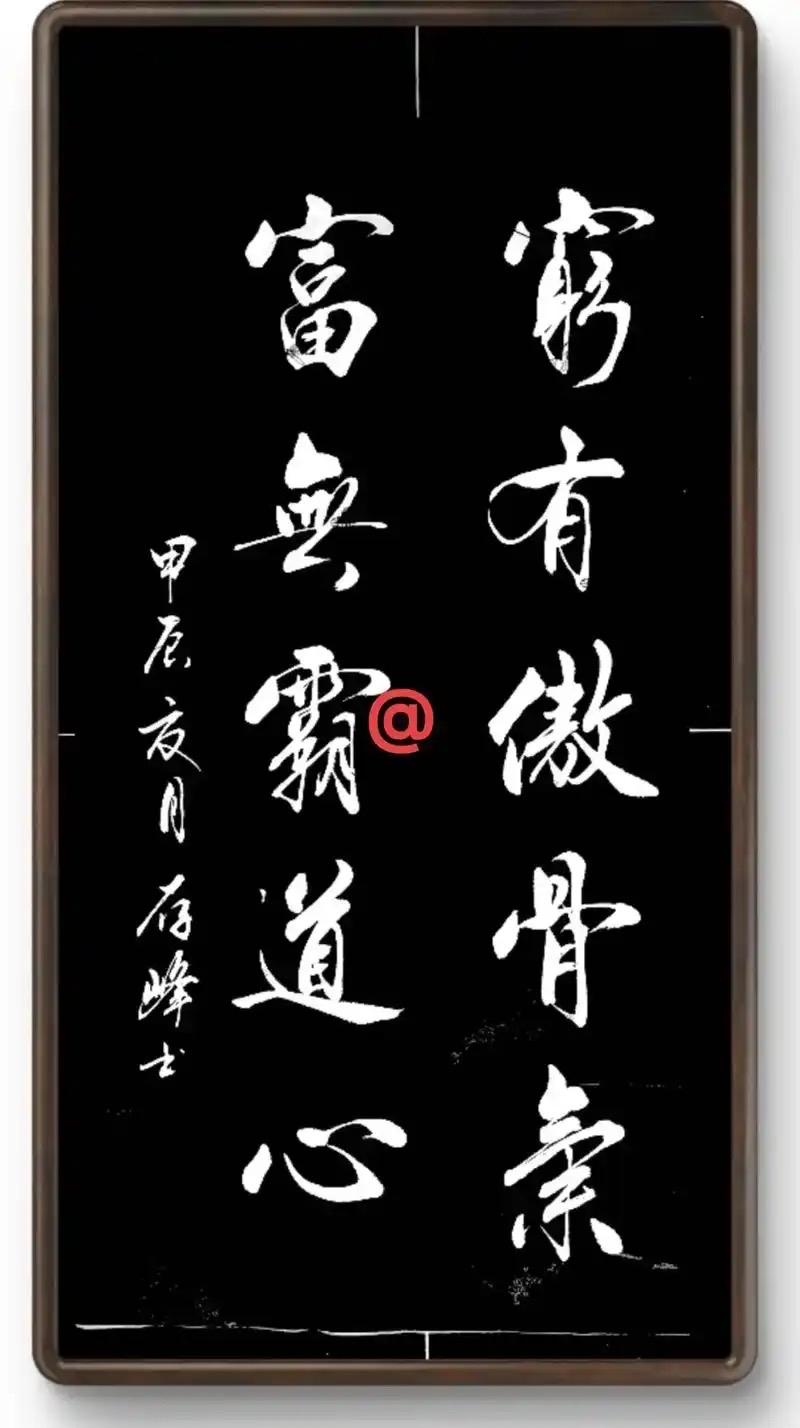 窮有傲骨氣
富無霸道心
甲辰亥月存峰書
@